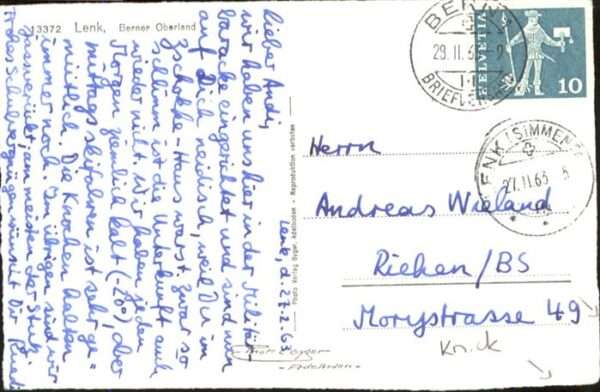 13372 Lenk, Berner Oberland
Lenk, d. 27.2.63
Lieber Andi,
wir haben uns hier in der Militär-
baracke eingerichtet und sind nun
auf Dich neidisch, weil Du im
Zschokke-Haus warst. Zwar so
schlimm ist die Unterkunft auch
wieder nicht. Wir haben jeden
Morgen ziemlich kalt (-20°), aber
mittags skifahren ist sehr ge-
mütlich. Die Knochen halten
immer noch. Im übrigen sind wir
am meisten der
Frohes Schulvergnügen wünscht Dir
Photo Verlag Gyger, Adelboden - Reproduktion verboten
BERN
BRIEFVERSAND
HELVETIA
10
LENK (SIMMENTAL)
27.II.63
Herrn
Andreas Wieland
Riehen/BS
Morystrasse 49
Knick
Gyger
- Adelboden -